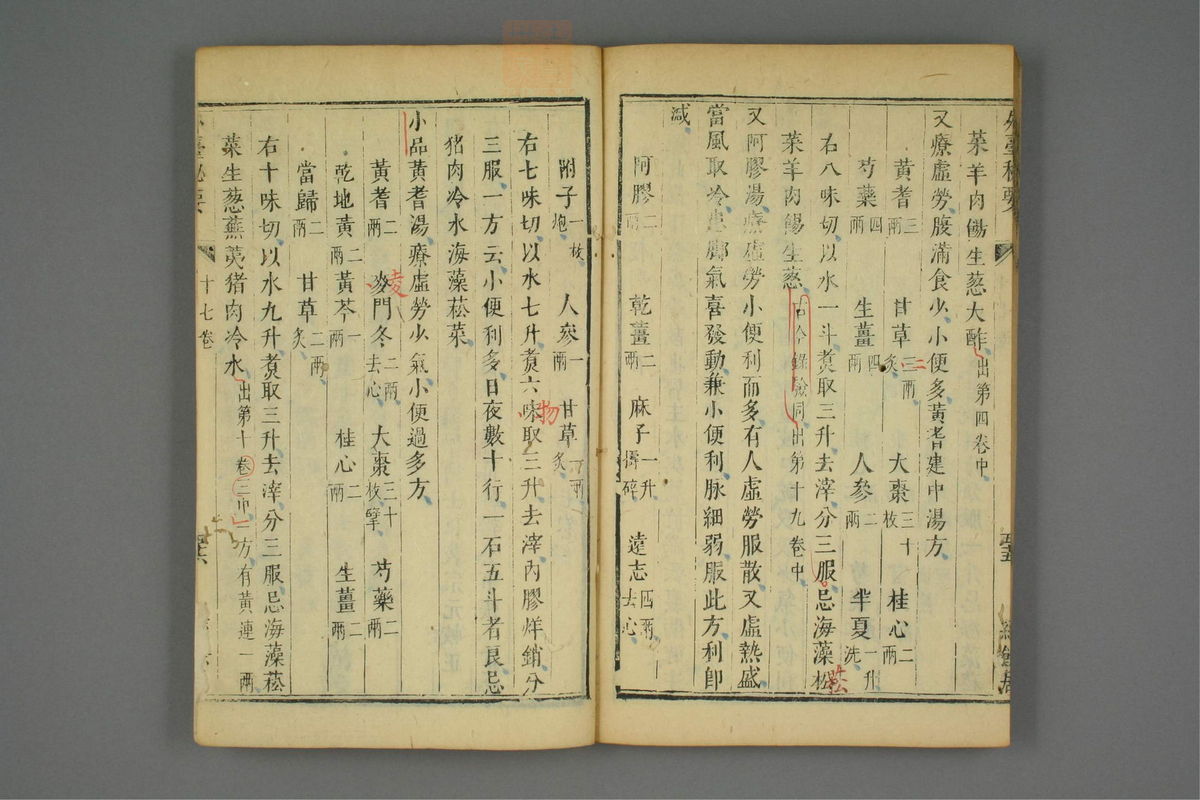 外臺秘要
菜羊肉餳生葱大酢出第四卷中
又療虛勞腹滿食少小便多黃耆建中湯方
黃耆三兩 甘草三兩炙 大棗三十枚 桂心二兩
芍藥四兩 生薑四兩 人參二兩 半夏一升洗
右八味切以水一斗煑取三升去滓分三服忌海藻菘
菜羊肉餳生葱古今錄驗同出第十九卷中
又阿膠湯療虛勞小便利而多有人虛勞服散又虛熱盛
當風取冷患腳氣喜發動兼小便利脉細弱服此方利即
減
阿膠二兩 乾薑二兩 麻子一升擣碎 遠志四兩去心
附子一枚炮 人參一兩 甘草一兩炙
右七味切以水七升煑六味取三升去滓內膠烊銷分
三服一方云小便利多日夜數十行一石五斗者良忌
猪肉冷水海藻菘菜
小品黃耆湯療虛勞少氣小便過多方
黃耆二兩 麥門冬二兩去心 大棗三十枚擘 芍藥二兩
乾地黃二兩 黃芩一兩 桂心二兩 生薑二兩
當歸二兩 甘草二兩炙
右十味切以水九升煑取三升去滓分三服忌海藻菘
菜生葱蕪荑猪肉冷水出第十卷三中一方有黃連一兩
外臺秘要
十七卷